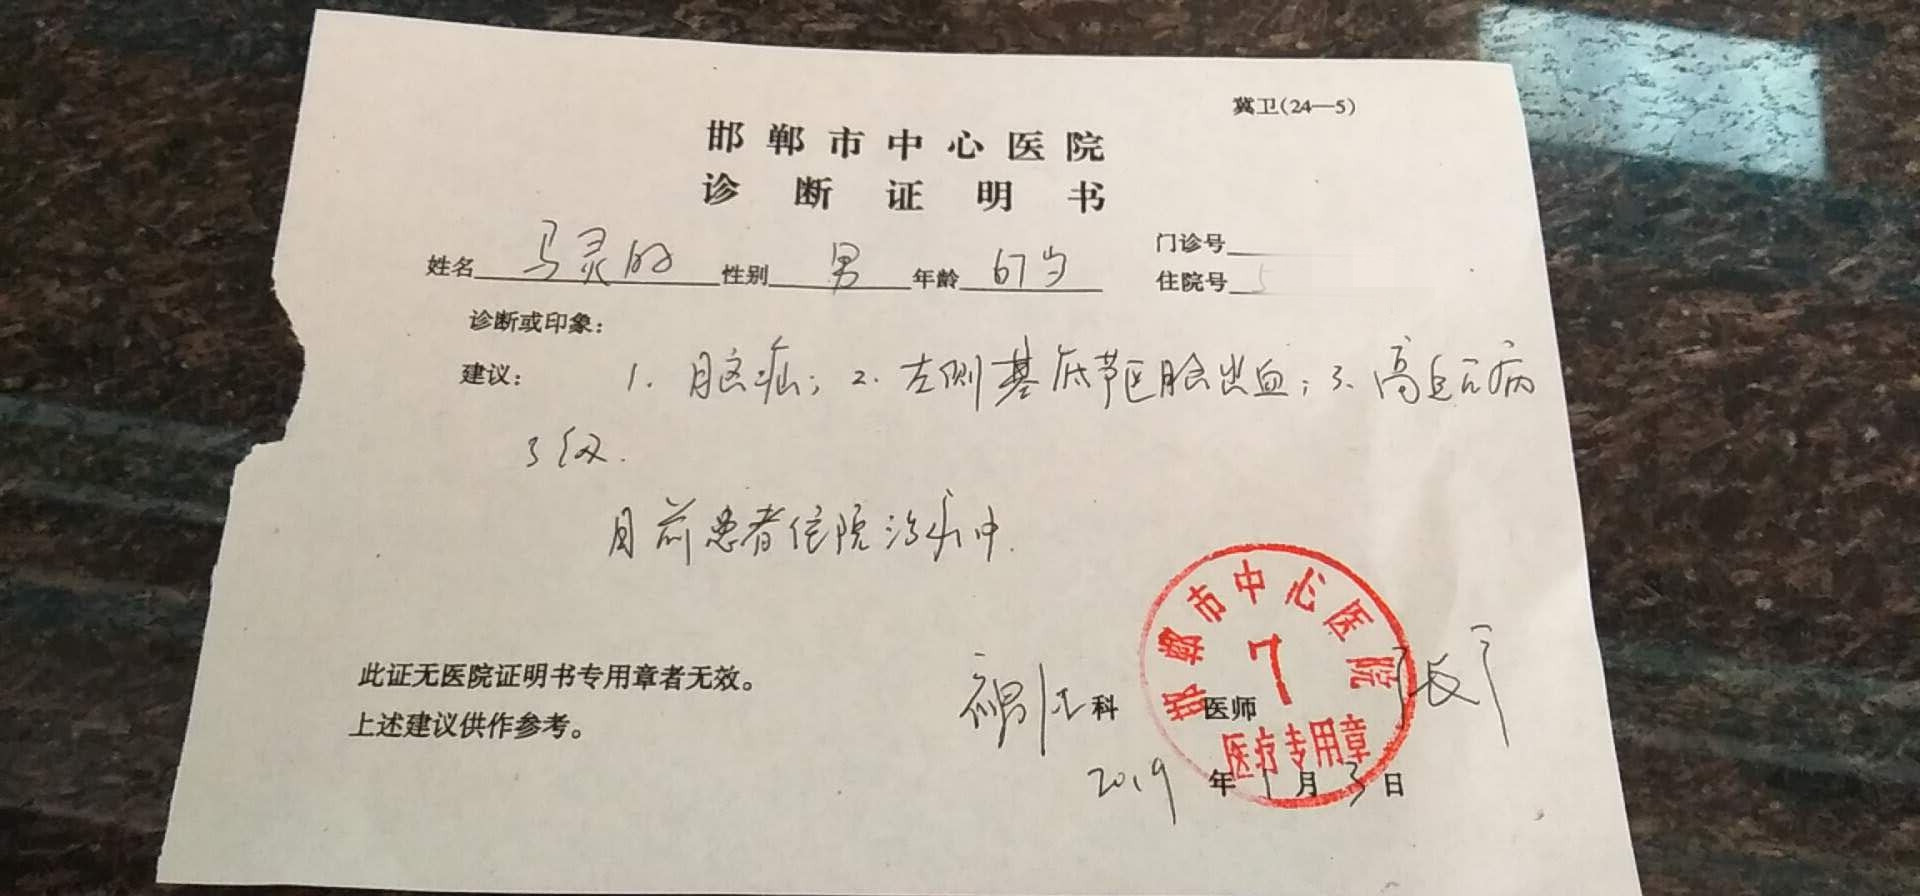 冀卫(24—5)
邯郸市中心医院
诊断证明书
姓名 马灵的 性别 男 年龄 67岁 门诊号
住院号 5
诊断或印象:
建议: 1. 脑疝; 2. 左侧基底节区脑出血; 3. 高血压病
3级.
目前患者住院治疗中.
邯郸市中心医院
7
医疗专用章
此证无医院证明书专用章者无效。
上述建议供作参考。
科 医师 张
2019年1月3日